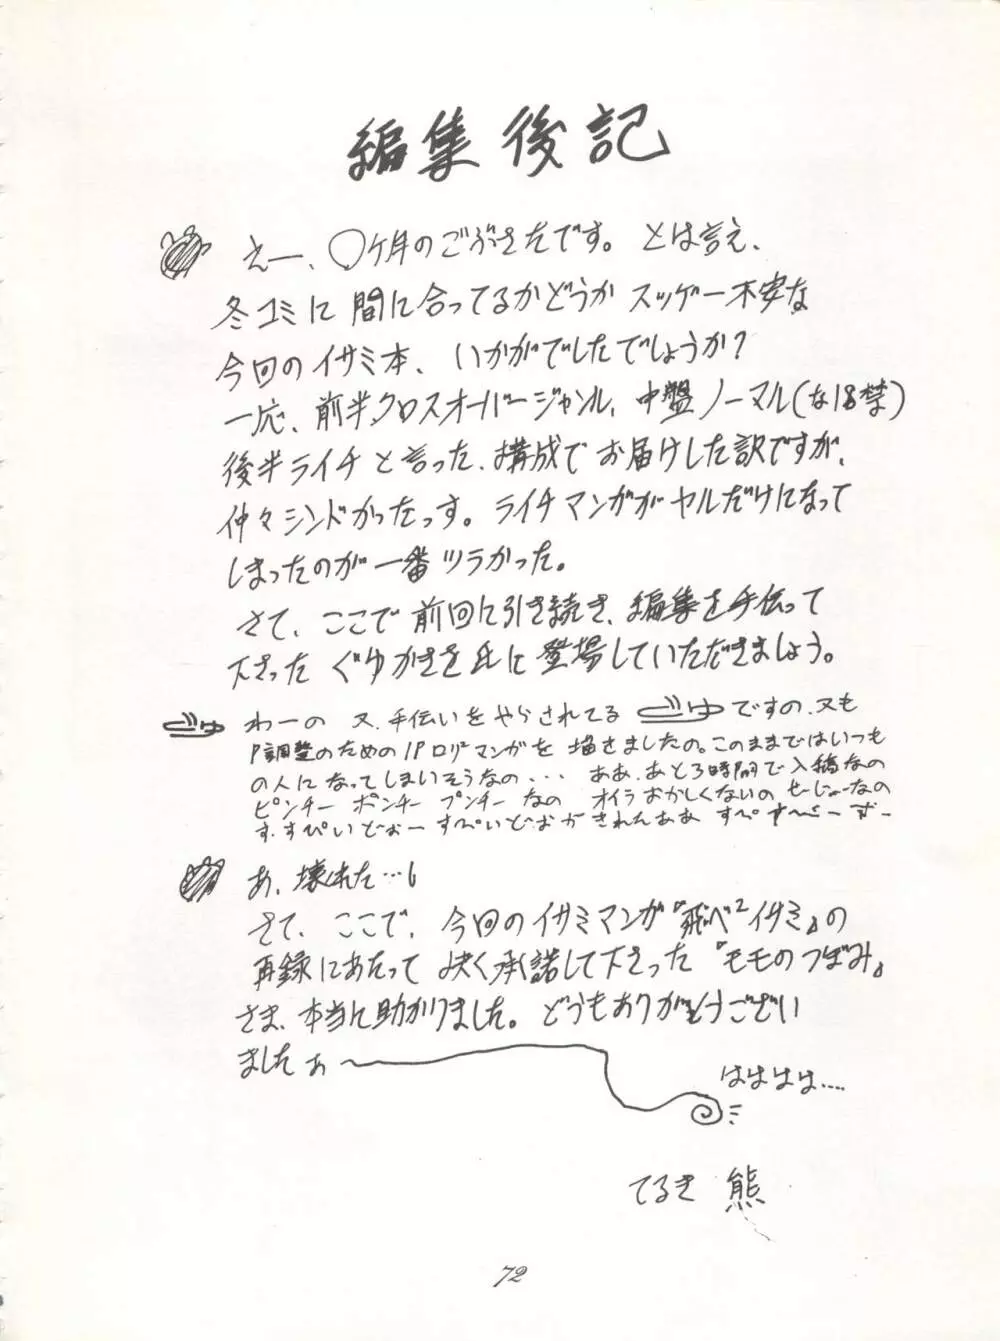 編集後記
えー、○ケ月のごぶさたです。とは言え、
冬コミに間に合ってるかどうかスッゲー不安な
今回のイサミ本、いかがでしたでしょうか?
一応、前半クロスオーバージャンル、中盤ノーマル(な18禁)
後半ライチと言った、構成でお届けした訳ですが、
仲々シンドかったっす。ライチマンガがヤルだけになって
しまったのが一番ツラかった。
さて、ここで前回に引き続き、編集を手伝って
下さったぐゆかきを氏に登場していただきましょう。
わーの 又、手伝いをやらされてる ですの、又も
P調整のための1Pロリマンガを描きましたの。このままではいつも
の人になってしまいそうなの... ああ、あと3時間で入稿なの
ピンチー ポンチー プンチー なの オイラおかしくないの
す、すぴいどぉー すぴいどぉ
あ、壊れた…
さて、ここで、今回のイサミマンガ『飛べ2イサミ』の
再録にあたって 快く承諾して下さった『モモのつぼみ』
さま、本当に助かりました。どうもありがとうござい
ましたぁ〜
はははは....
てるき 熊
72